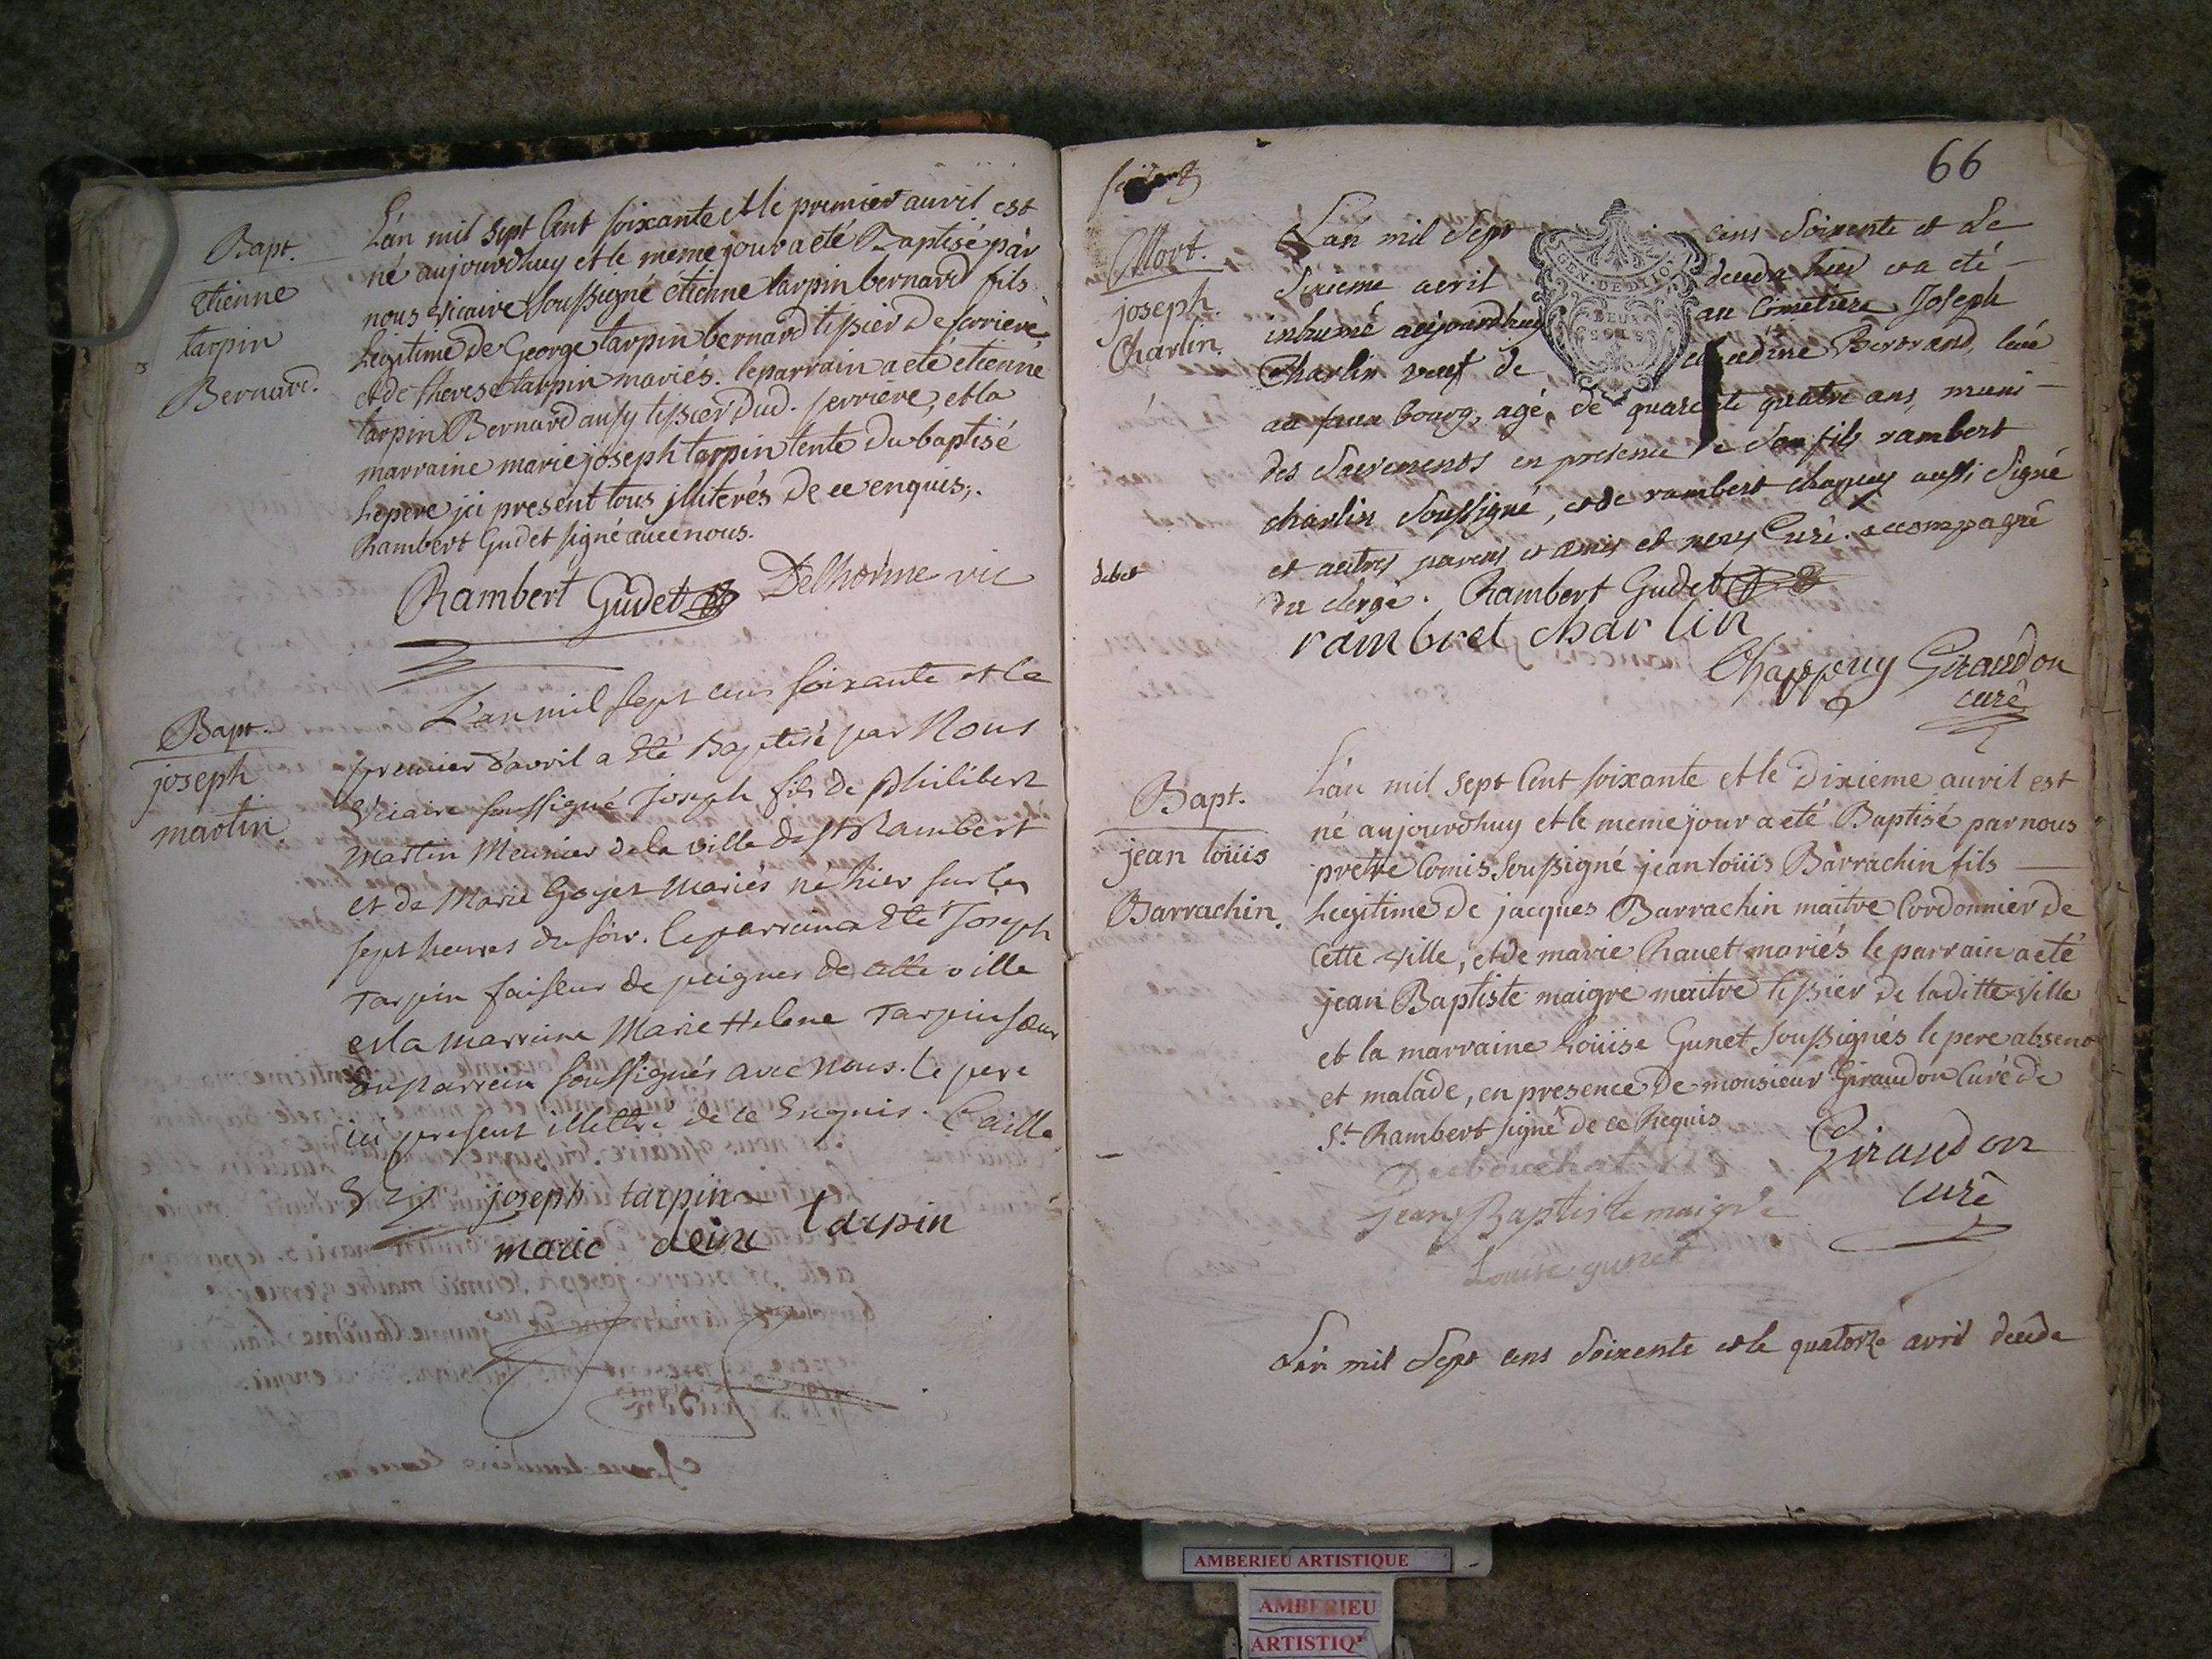 Bapt.
etienne
tarpin
Bernard.
L'an mil sept Cent soixante et le premier auvril est
né aujourdhuy et le meme jour a eté Baptisé par
nous vicaire soussigné étienne tarpin bernard fils
Legitime de George tarpin bernard tissier de serriere,
et de therese tarpin mariés. le parrain a eté etienne
tarpin Bernard aussy tissier dud. serriere, et la
marraine marie joseph tarpin tente du baptisé
Le pere ici present tous illiterés de ce enquis,.
Rambert Gudet signé avec nous.
Rambert Gudet Delhorme vic
Bapt.
joseph
martin.
L'an mil sept cens soixante et le
premier d'avril a Eté Baptisé par Nous
Vicaire soussigné Joseph fils de Philibert
Martin Meunier de la ville de St Rambert
et de Marie Goyet Mariés né hier sur les
sept heures du soir. le parrain a Eté Joseph
Tarpin faiseur de peignes de cette ville
et la Marraine Marie Helene Tarpin sœur
du parrein soussignés avec Nous. le pere
ici present illettré de ce Enquis. Caille
joseph tarpin
marie eleine tarpin
66
Mort.
joseph
Charlin.
L'an mil Sept cens Soixente et Le
Sixieme avril deceda hier et a eté
inhumé aujourdhuy au Cimetiere Joseph
Charlin veuf de claudine Bertrand, laué
au faux bourg, agé, de quarente quatre ans, muni
des Sacrements en presence de Son fils rambert
charlin Soussigné, et de rambert chapuy aussi Signé
et autres parens et amis et nous Curé. accompagné
du clergé. Rambert Gudet
debet
rambret charlin
Chappuy Giraudon
curé
GEN. DE DIJON
DEUX
SOLS
Bapt.
jean loüis
Barrachin.
L'an mil sept Cent soixante et le dixieme auvril est
né aujourdhuy et le meme jour a eté Baptisé par nous
pretre Comis soussigné jean loüis Barrachin fils
Legitime de jacques Barrachin maitre Cordonnier de
Cette ville, et de marie Chauet mariés le parrain a eté
jean Baptiste maigre maitre tissier de laditte ville
et la marraine Loüise Gunet soussignés le pere absent
et malade, en presence de monsieur Giraudon Curé de
St Rambert signé de ce Requis
Giraudon
curé
Jean Baptiste maigre
Louise gunet
L'an mil Sept cens Soixente et le quatorze avril deceda
AMBERIEU ARTISTIQUE
AMBERIEU
ARTISTIQ